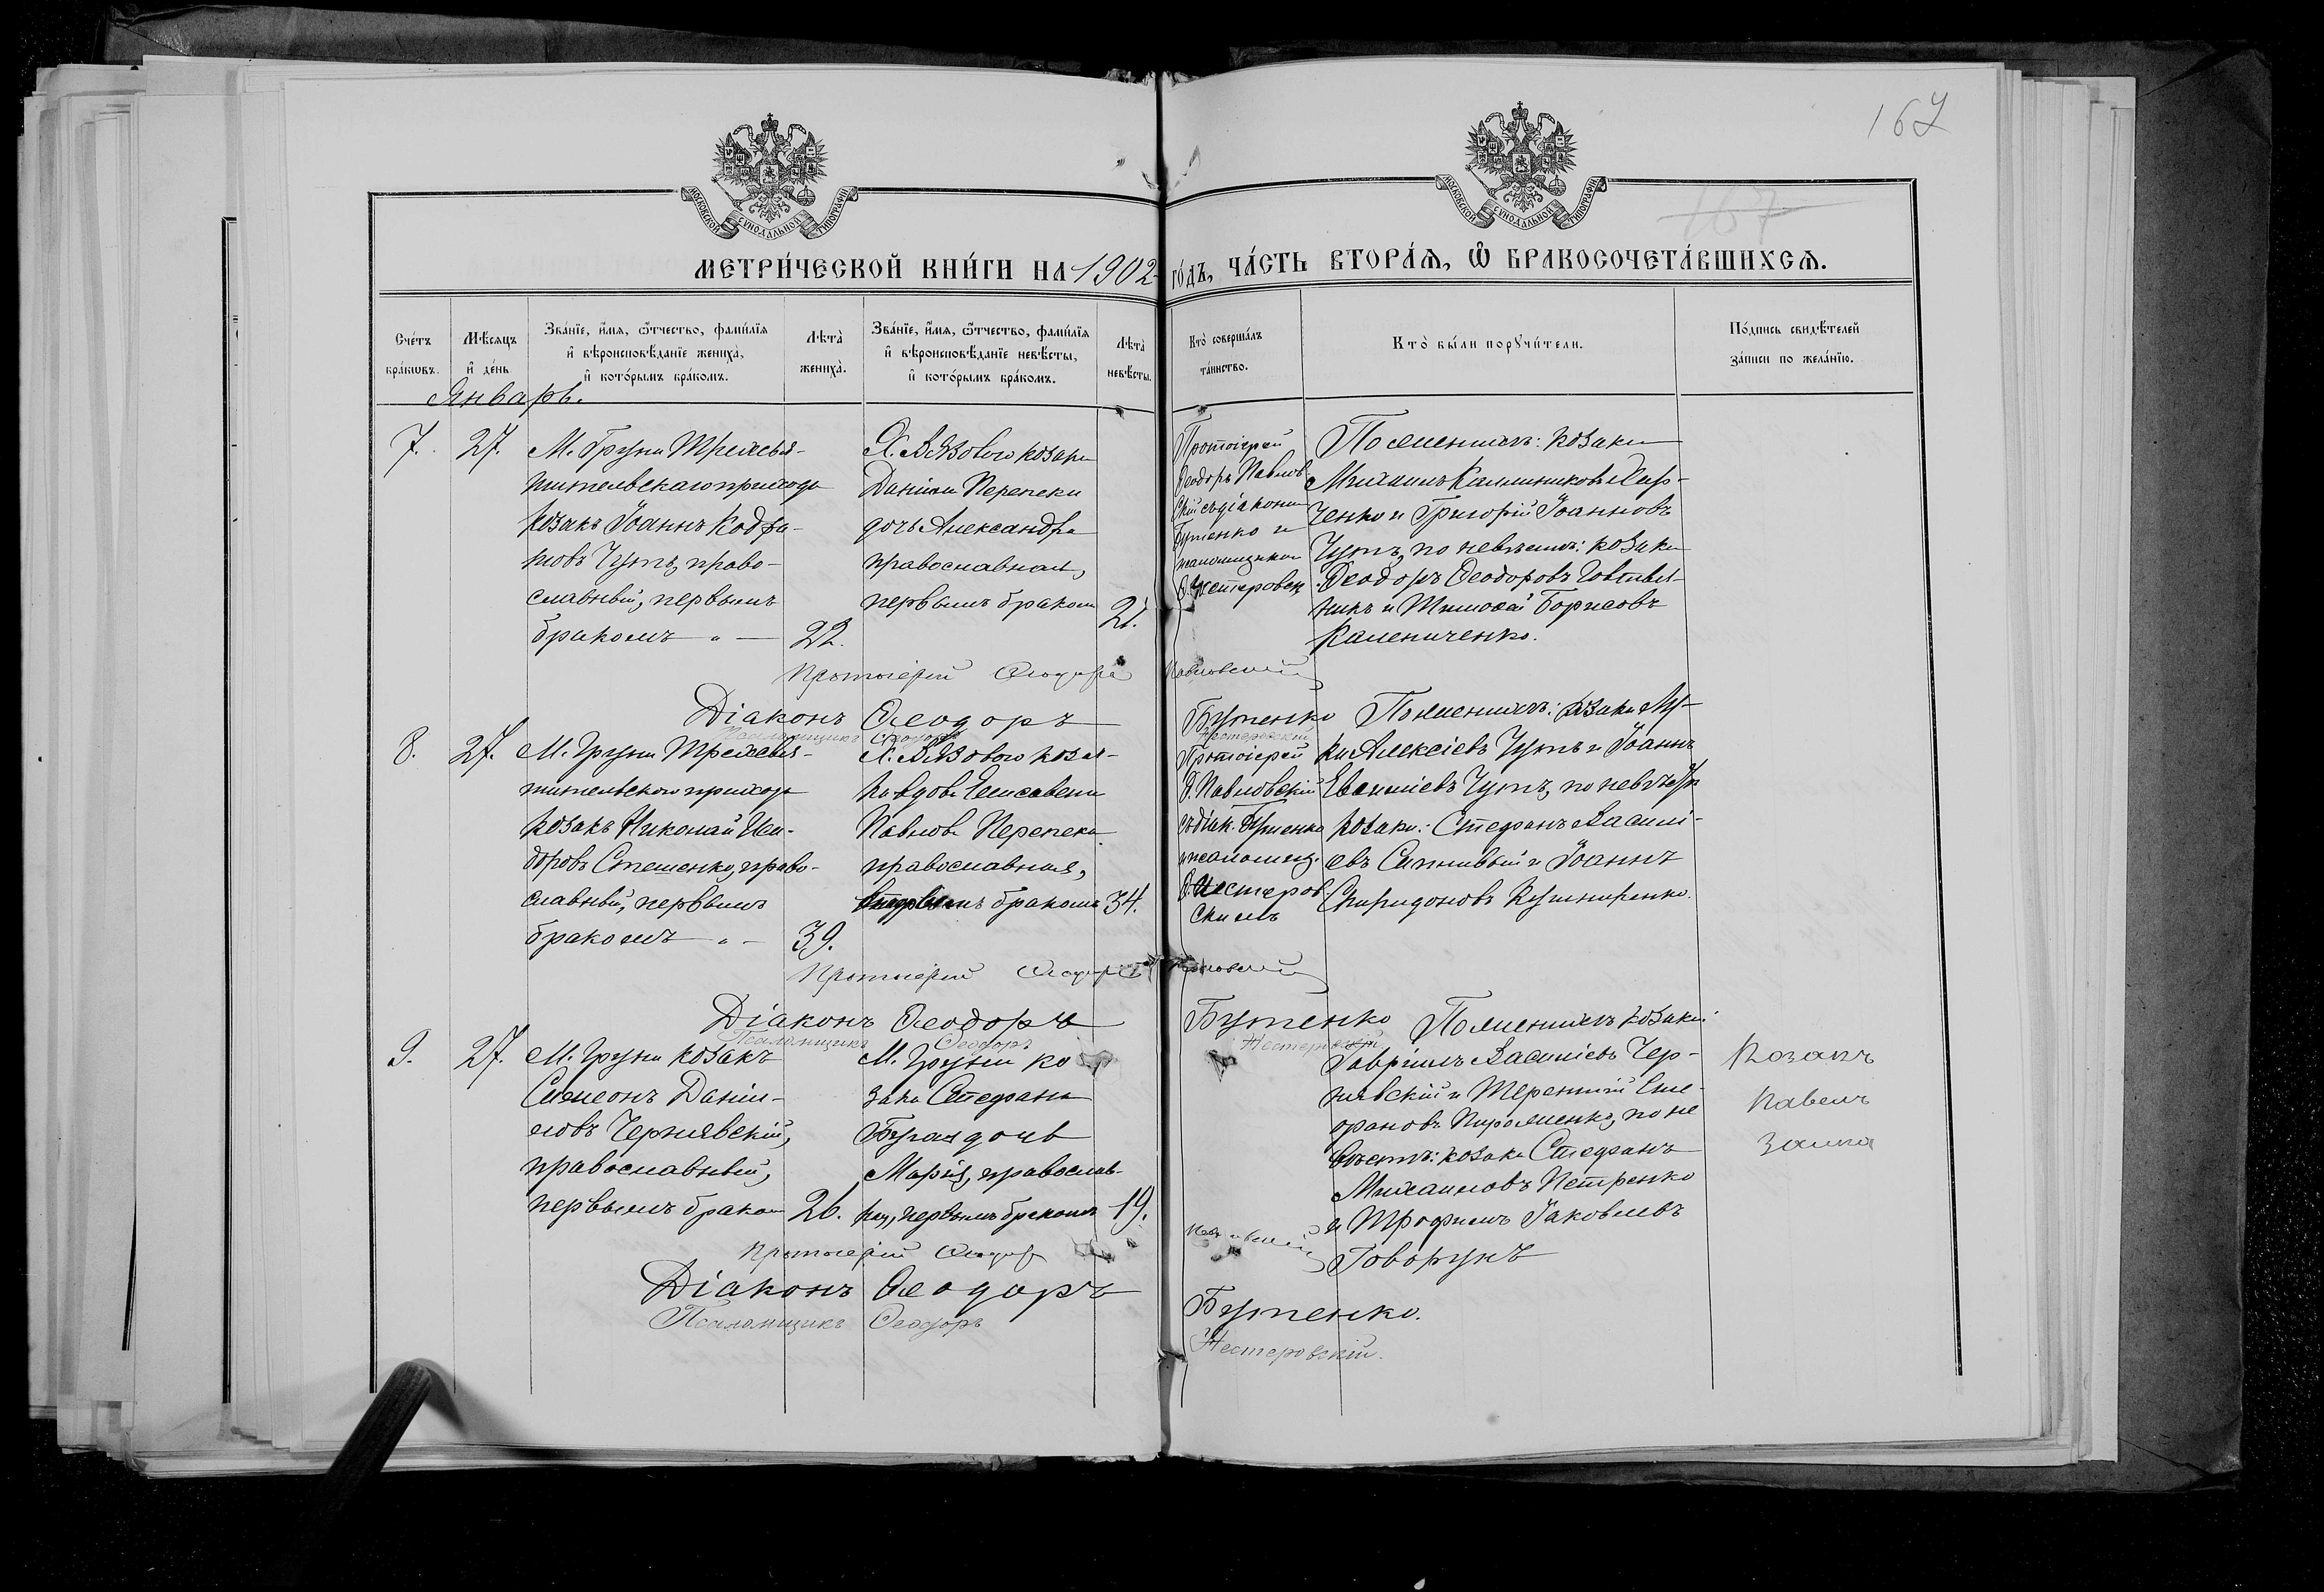 167
167
МОСКОВСКОЙ СУНОДАЛЬНОЙ ТИПОГРАФІИ
МОСКОВСКОЙ СУНОДАЛЬНОЙ ТИПОГРАФІИ
МЕТРИ́ЧЕСКОЙ КНИ́ГИ НА 1902 го́дъ, ЧА́СТЬ ВТОРА́Я, Ѽ БРАКОСОЧЕТА́ВШИХСЯ.
Сче́тъ
бра́кѡвъ.
Мѣ́сяцъ
и҆ де́нь
Зва́нїе, и҆́мя, ѻ҆́тчество, фами́лїя
и҆ вѣроисповѣ́данїе жениха̀,
и҆ кото́рымъ бра́комъ.
Лѣта̀
жениха̀.
Зва́нїе, и҆́мя, ѻ҆́тчество, фами́лїя
и҆ вѣроисповѣ́данїе невѣ́сты,
и҆ кото́рымъ бра́комъ.
Лѣта̀
невѣ́сты.
Кто̀ соверша́лъ
та́инство.
Кто̀ бы́ли порꙋчи́тели.
По́дпись свидѣ́телей
за́писи по жела́нїю.
Январь.
7.
27.
М. Груни Трехсвя-
тительскаго прихода
козакъ Іоаннъ Кодра-
товъ Чутъ, право-
славный, первымъ
бракомъ
22.
Х. Вязоваго козака
Даніила Перепеки
дочь Александра
православная,
первымъ бракомъ
21.
Протоіерей
Ѳеодоръ Павлов-
скій съ діакономъ
Бутенко и
псаломщикомъ
Ѳ. Нестеровск
По женихѣ: козаки
Михаилъ Каллиниковъ Хар-
ченко и Григорій Іоанновъ
Чутъ, по невѣстѣ: козаки
Ѳеодоръ Ѳеодоровъ
никъ и Тимоѳей Борисовъ
Калениченко.
Протоіерей Ѳеодоръ Павловскій
Діаконъ Ѳеодоръ Бутенко
Псаломщикъ Ѳеодоръ Нестеровскій
8.
27.
М. Груни Трехсвя-
тительскаго прихода
козакъ Николай Иси-
доровъ Стешенко, право-
славный, первымъ
бракомъ
39.
Х. Вязоваго козач-
ка вдова Елисавета
Павлова Перепека
православная,
бракомъ
34.
Протоіерей
Ѳ. Павловскій
съ діак. Бутенко
и псаломщ.
Ѳ. Нестеров-
скимъ
По женихѣ: козаки Лу-
ка Алексіевъ Чутъ и Іоаннъ
Евѳиміевъ Чутъ, по невѣстѣ
козаки: Стефанъ Василі-
евъ и Іоаннъ
Спиридоновъ Кушниренко.
Протоіерей Ѳеодоръ Павловскій
Діаконъ Ѳеодоръ Бутенко
Псаломщикъ Ѳеодоръ Нестеровскій
9.
27.
М. Груни козакъ
Симеонъ Даніи-
ловъ Чернявскій,
православный,
первымъ бракомъ
26.
М. Груни ко
зака Стефана
дочь
Марія, православ-
ная, первымъ бракомъ
19.
По женихѣ козаки:
Гавріилъ Василіевъ Чер-
нявскій и Терентій
Пироженко, по не
вѣстѣ: козаки Стефанъ
Михаиловъ Петренко
и Трофимъ Іаковлевъ
Говорунъ
Козакъ
Павелъ
Протоіерей Ѳеодоръ Павловскій
Діаконъ Ѳеодоръ Бутенко.
Псаломщикъ Ѳеодоръ Нестеровскій.